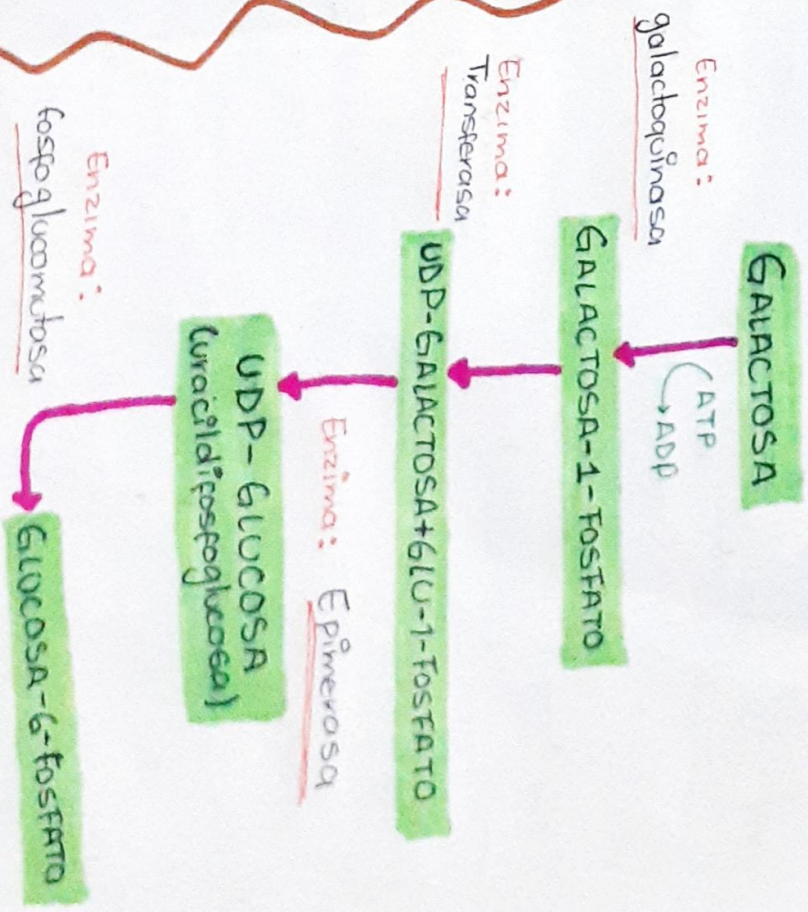 GALACTOSA
ATP
ADP
Enzima:
galactoquinasa
GALACTOSA-1-FOSFATO
Enzima:
Transferasa
UDP-GALACTOSA+GLU-1-FOSFATO
Enzima: Epimerasa
UDP-GLUCOSA
(uracildifosfoglucosa)
Enzima:
fosfoglucomutasa
GLUCOSA-6-FOSFATO